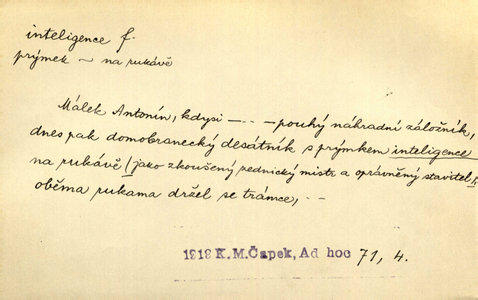 inteligence f.
prýmek ~ na rukávě
Málek Antonín, kdysi – – – pouhý náhradní záložník,
dnes pak domobranecký desátník s prýmkem inteligence
na rukávě (jako zkoušený zednický mistr a oprávněný stavitel),
oběma rukama držel se trámce, – –
1919 K.M.Čapek, Ad hoc 71, 4.